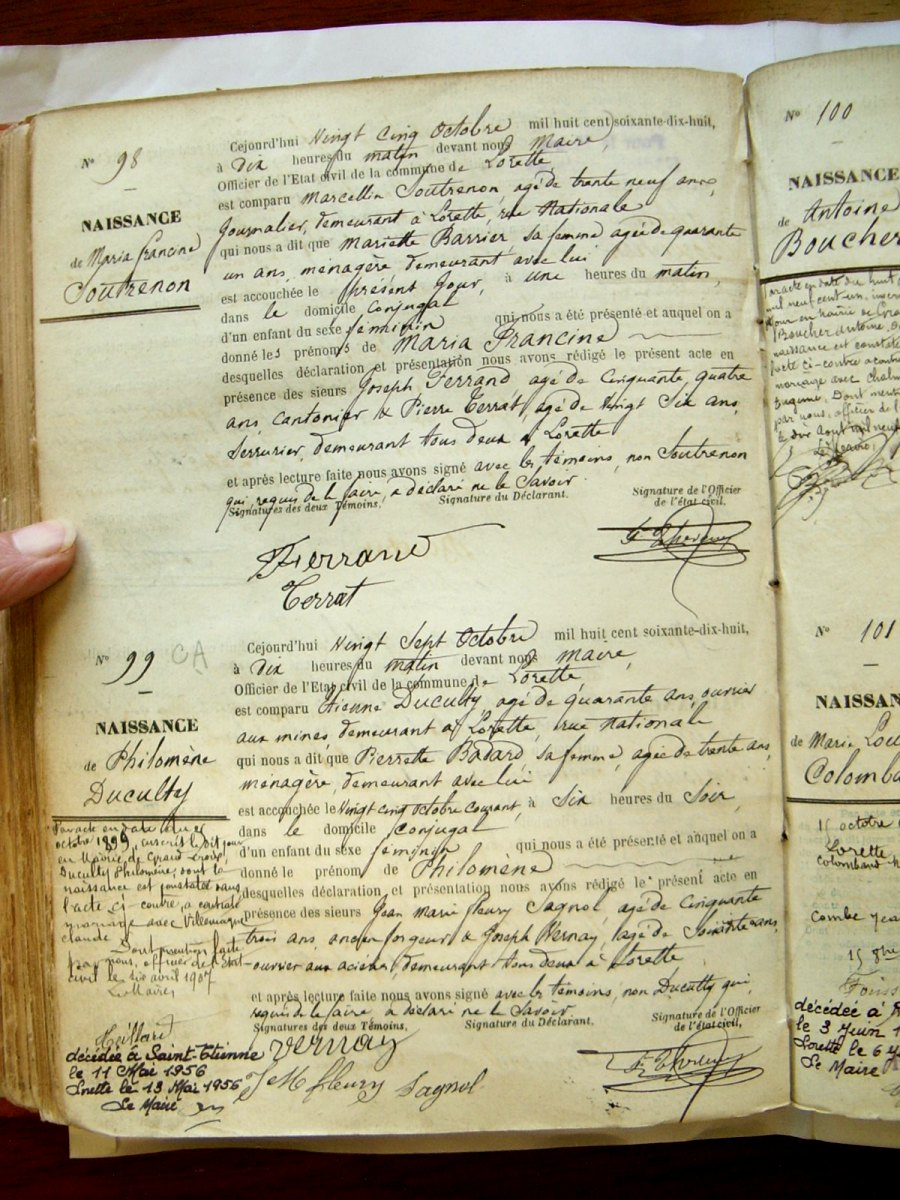 N° 98
NAISSANCE
de Maria Francine
Soutrenon
Cejourd'hui Vingt Cinq Octobre mil huit cent soixante-dix-huit,
à Dix heures du matin devant nous Maire,
Officier de l'Etat civil de la commune de Lorette
est comparu Marcellin Soutrenon, agé de trente neuf ans,
Journalier, demeurant à Lorette, rue Nationale
qui nous a dit que Mariette Barrier, sa femme agée de quarante
un ans, ménagère, demeurant avec lui
est accouchée le présent Jour, à une heures du matin,
dans le domicile conjugal
d'un enfant du sexe féminin qui nous a été présenté et auquel on a
donné les prénoms de Maria Francine
desquelles déclaration et présentation nous avons rédigé le présent acte en
présence des sieurs Joseph Ferrand agé de Cinquante, quatre
ans, cantonier & Pierre Terrat, agé de Vingt Six ans,
Serrurier, demeurant tous deux à Lorette
et après lecture faite nous avons signé avec les témoins, non Soutrenon
qui, requis de le faire, a déclaré ne le Savoir.
Signatures des deux Témoins, Signature du Déclarant. Signature de l'Officier
de l'état civil,
Ferrand
Terrat
N° 99 CA
NAISSANCE
de Philomène
Duculty
Cejourd'hui Vingt Sept Octobre mil huit cent soixante-dix-huit,
à Dix heures du matin devant nous Maire,
Officier de l'Etat civil de la commune de Lorette
est comparu Etienne Duculty, agé de quarante ans, ouvrier
aux mines, demeurant à Lorette, rue Nationale
qui nous a dit que Pierrette Badard, sa femme, agée de trente ans,
ménagère, demeurant avec lui
est accouchée le Vingt cinq Octobre courant, à Six heures du Soir,
dans le domicile conjugal
d'un enfant du sexe féminin qui nous a été présenté et auquel on a
donné le prénom de Philomène
desquelles déclaration et présentation nous avons rédigé le présent acte en
présence des sieurs Jean Marie fleury Sagnol, agé de Cinquante
trois ans, ancien forgeur & Joseph Vernay, agé de Soixante ans,
ouvrier aux aciéries, demeurant tous deux à Lorette
et après lecture faite nous avons signé avec les témoins, non Duculty qui,
requis de le faire a déclaré ne le Savoir.
Signatures des deux Témoins, Signature du Déclarant. Signature de l'Officier
de l'état civil,
Vernay
J M fleury Sagnol
Par acte en date du
octobre 1899, inscrit le dit jour
en Mairie de Grand Croix,
Duculty Philomène, dont la
naissance est constatée dans
l'acte ci-contre, a contracté
mariage avec Villemagne
claude. Dont mention faite
par nous, officier de l'Etat
civil le dix avril 1907
Le Maire,
décédée à Saint-Etienne
le 11 Mai 1956
Lorette le 13 Mai 1956
Le Maire
N° 100
NAISSANCE
de Antoine
Boucher
Par acte en date du huit
mil neuf cent un, inscrit
jour en mairie de
Boucher Antoine, d
naissance est constaté
l'acte ci-contre a contr
mariage avec
Dont menti
par nous, officier de l
le dix Aout mil neuf
Le Maire,
N° 101
NAISSAN
de Marie Lou
Colomba
15 octobre
Lorette
Combe
décédée à
le 3 Juin 1
Lorette le 6
Le Maire